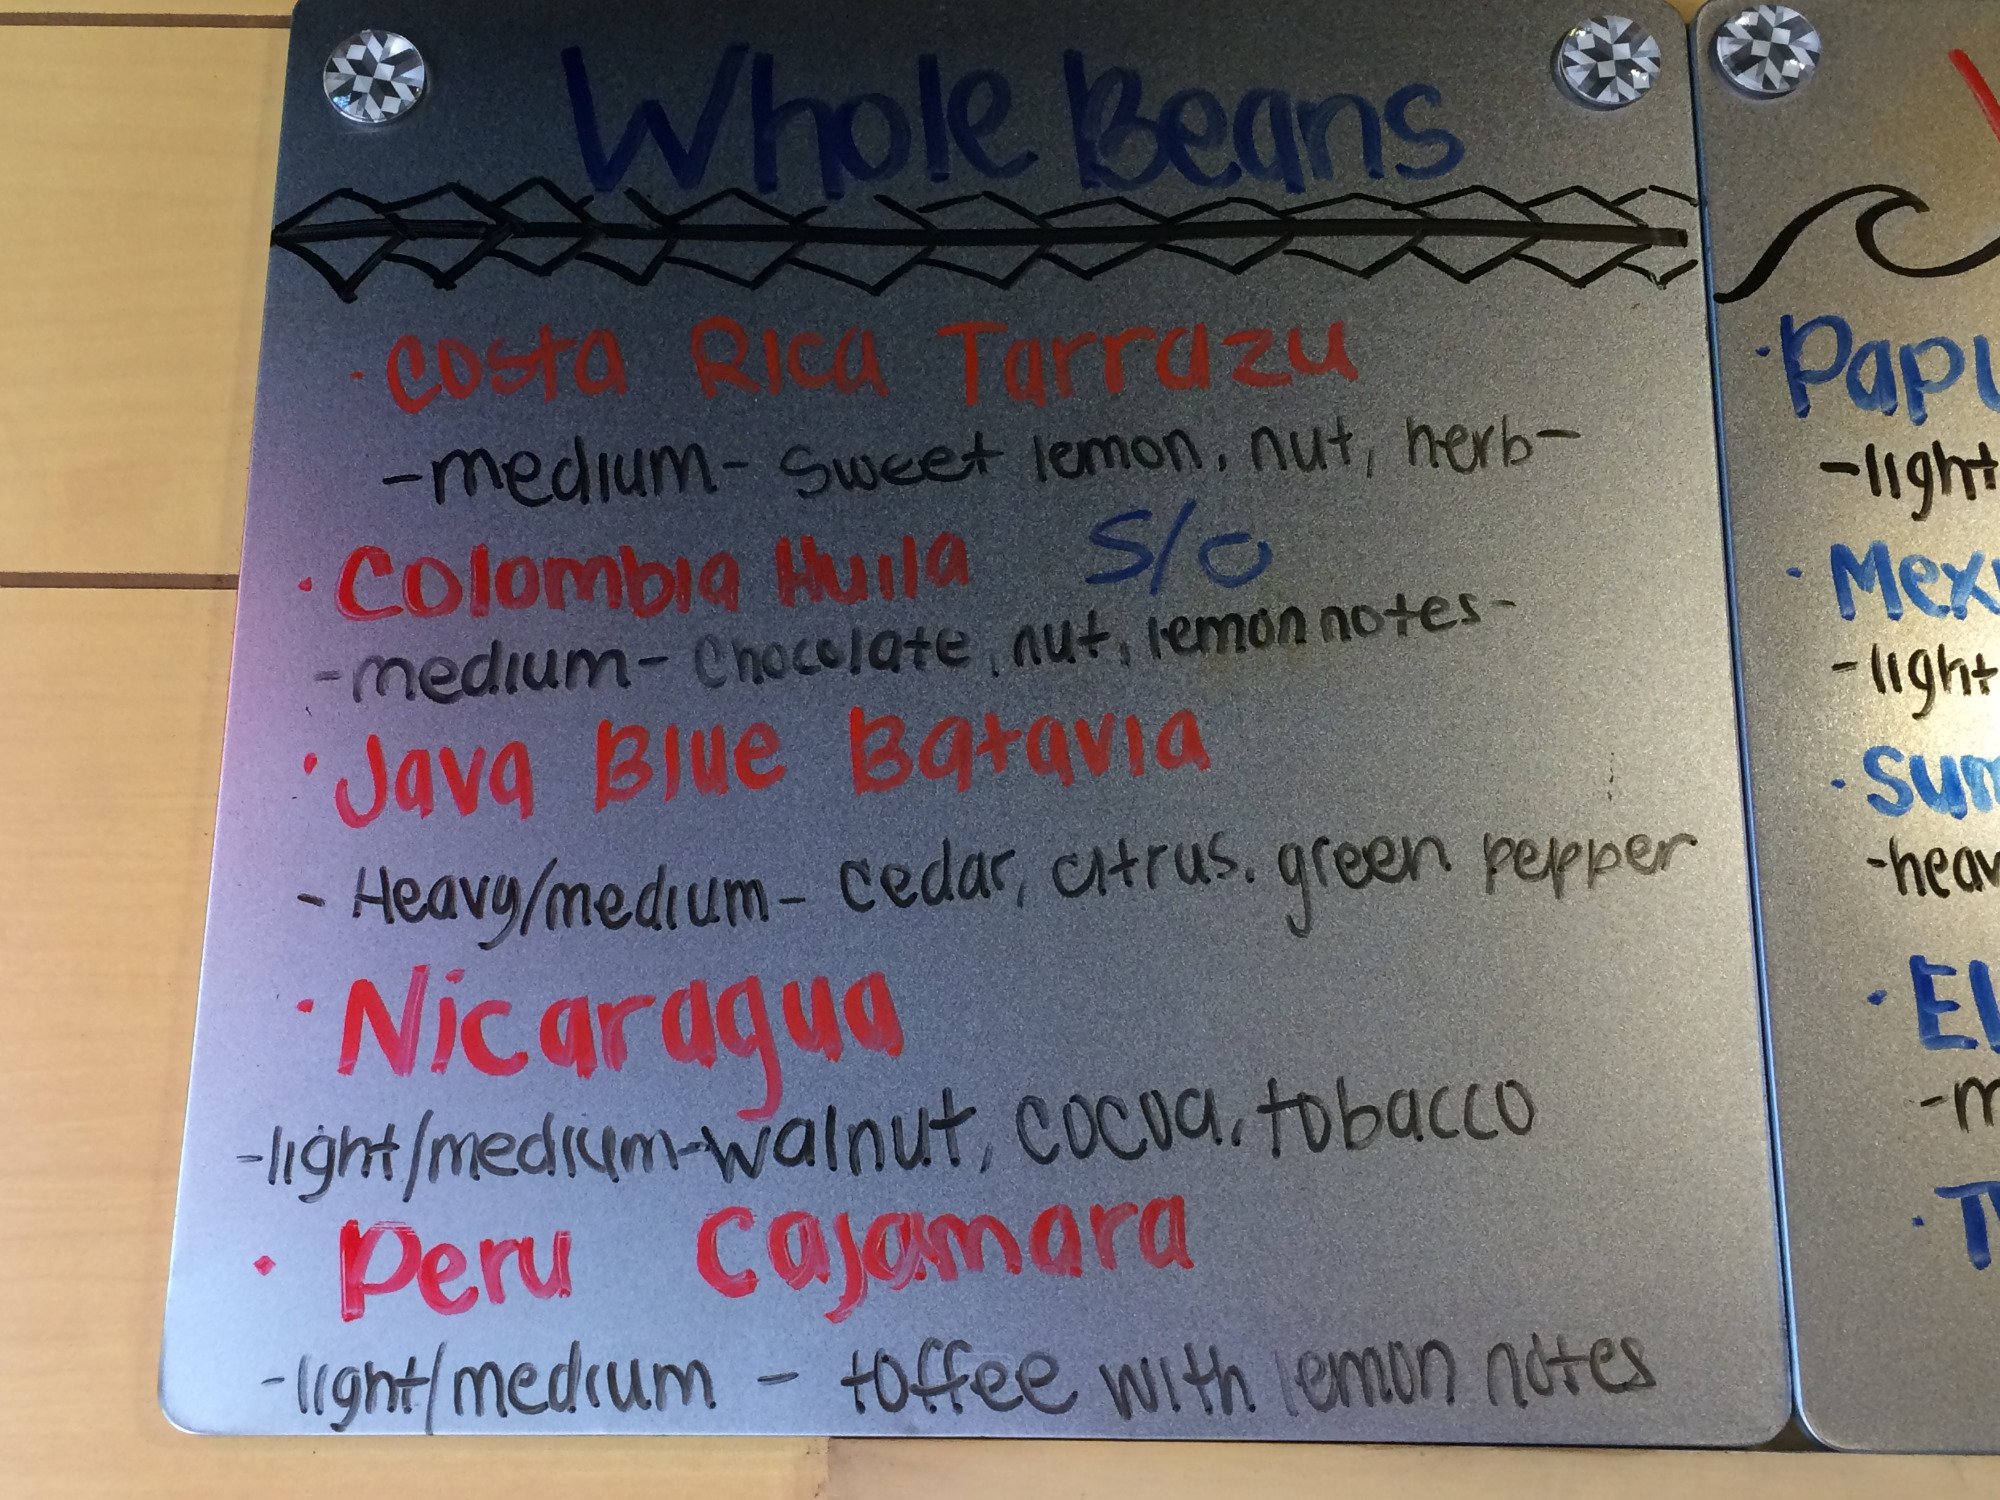 Whole Beans
· Costa Rica Tarrazu
-medium- sweet lemon, nut, herb-
· Colombia Huila S/O
-medium- Chocolate, nut, lemon notes-
· Java Blue Batavia
- Heavy/medium- cedar, citrus. green pepper
· Nicaragua
-light/medium-walnut, cocoa, tobacco
· Peru Cajamara
-light/medium - toffee with lemon notes
-light
-light